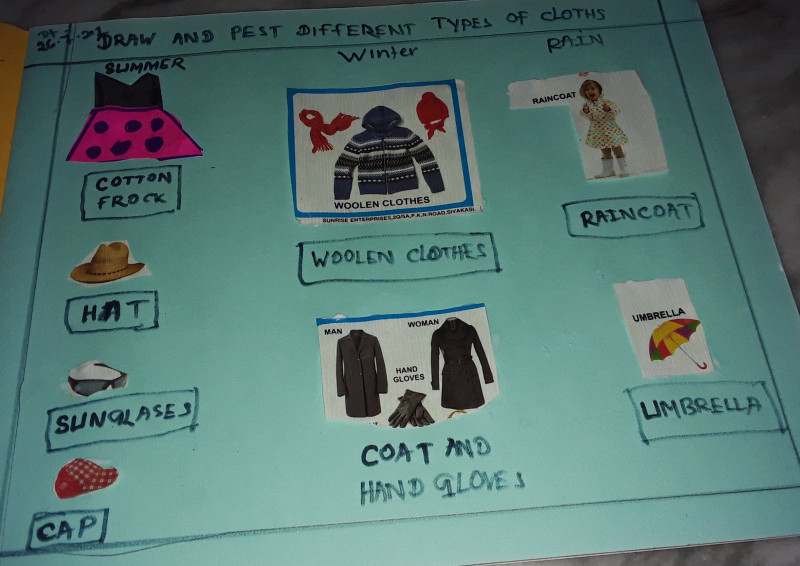 DRAW AND PEST DIFFERENT TYPES OF CLOTHS
SUMMER
Winter
RAIN
COTTON
FROCK
HAT
SUNGLASES
CAP
WOOLEN CLOTHES
SUNRISE ENTERPRISES,2Q/5A,P.K.N.ROAD,SIVAKASI.
WOOLEN CLOTHES
MAN
WOMAN
HAND
GLOVES
COAT AND
HAND GLOVES
RAINCOAT
RAINCOAT
UMBRELLA
UMBRELLA